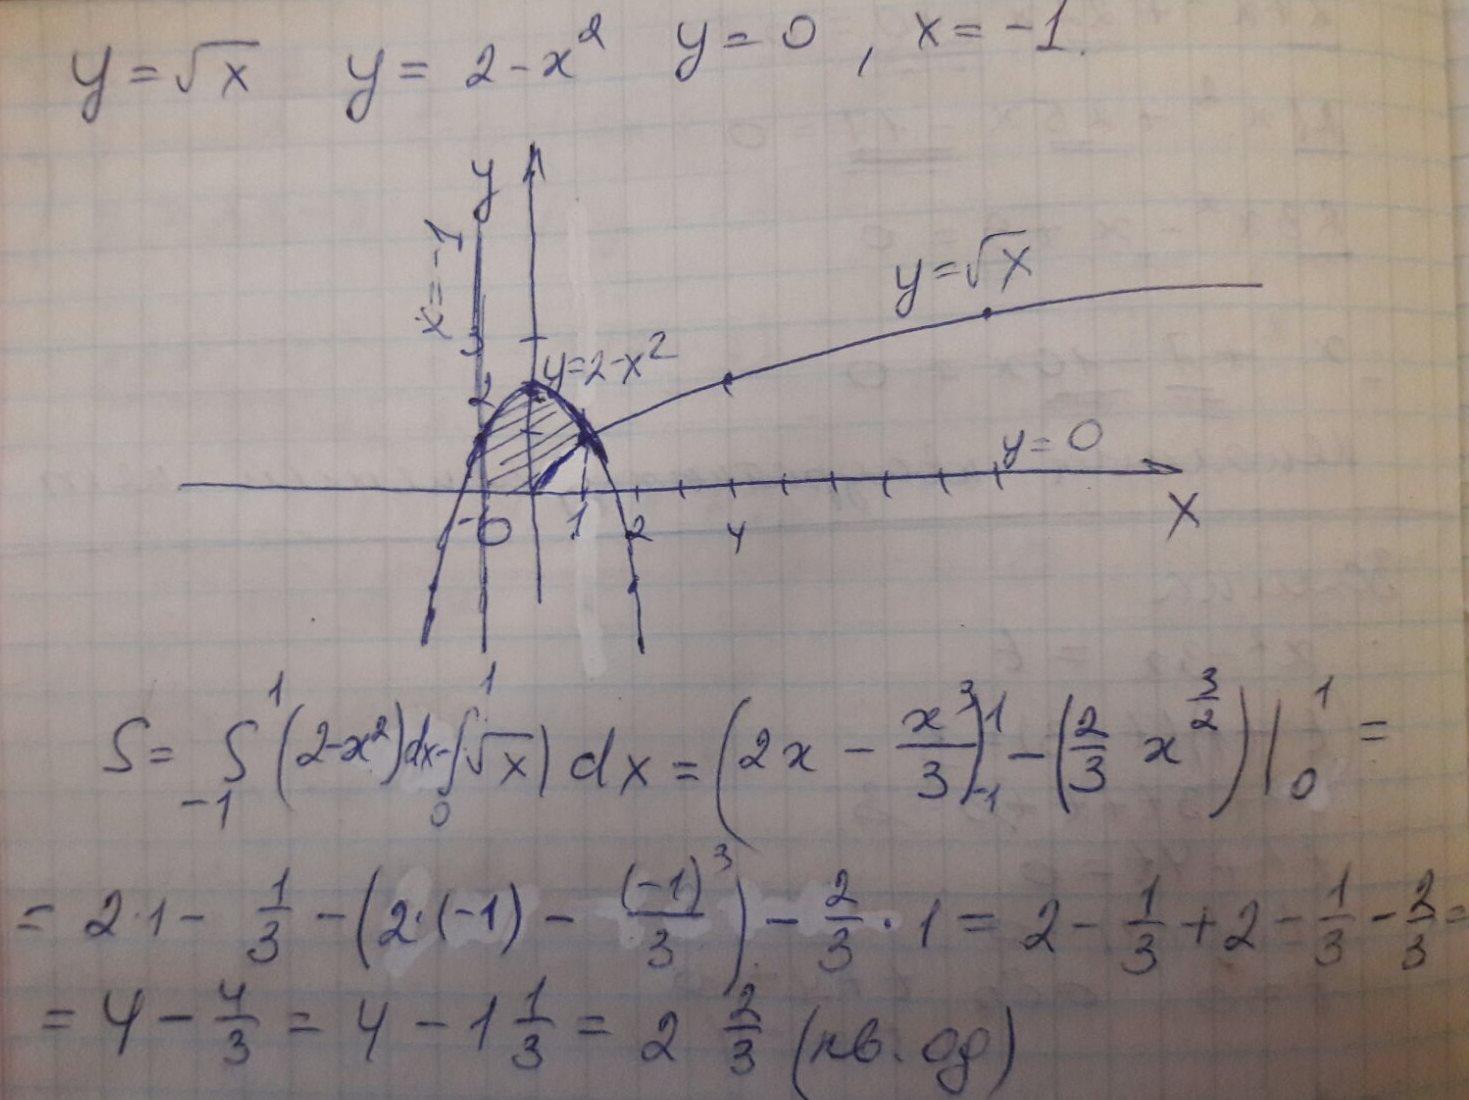 y = √x   y = 2 - x²   y = 0 , x = -1.
y
x = -1
y = √x
3
y = 2 - x²
2
y = 0
-1 0 1 2 4 x
S = ∫₋₁¹ (2 - x²) dx - ∫₀¹ √x) dx = (2x - x³/3)|₋₁¹ - (2/3 x^(3/2))|₀¹ =
= 2·1 - 1/3 - (2·(-1) - (-1)³/3) - 2/3 · 1 = 2 - 1/3 + 2 - 1/3 - 2/3 =
= 4 - 4/3 = 4 - 1 1/3 = 2 2/3 (кв. од)